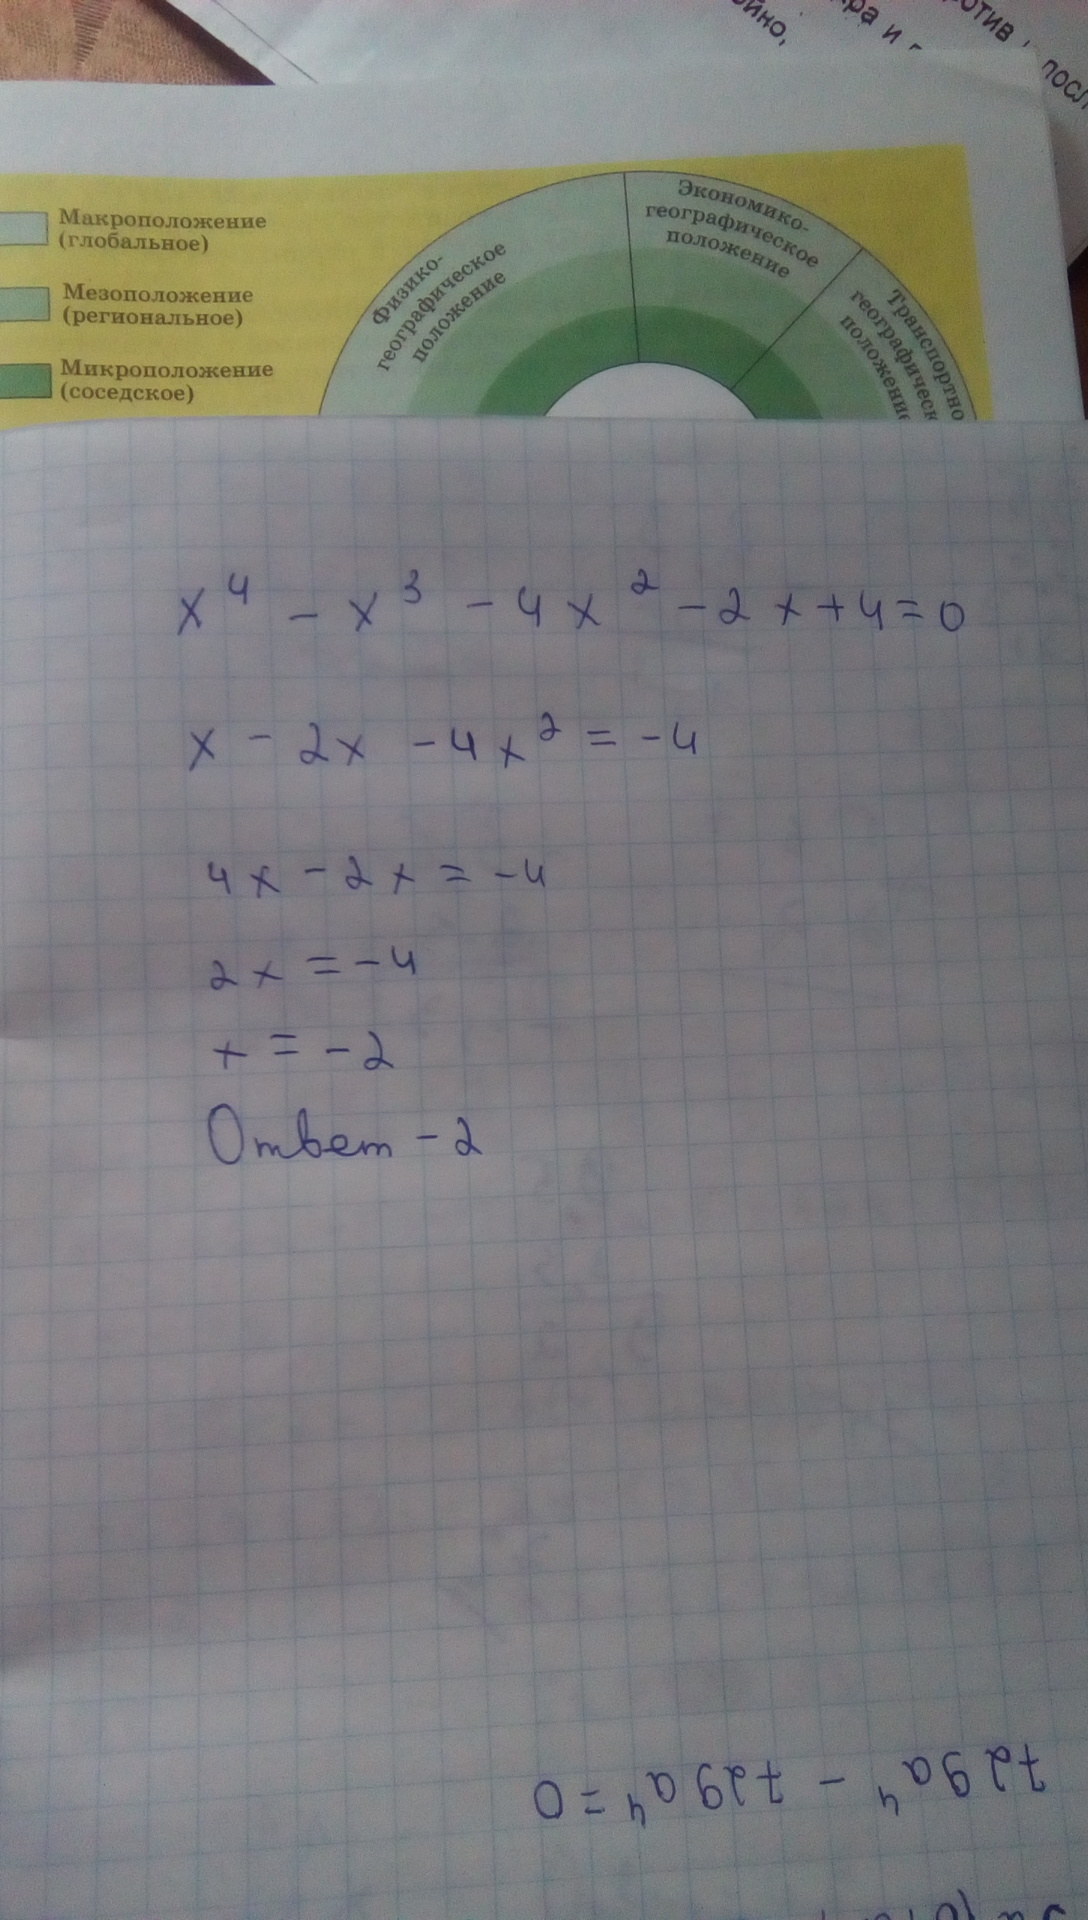 ра и
отив
посл
ойно,
Макроположение
(глобальное)
Мезоположение
(региональное)
Микроположение
(соседское)
Физико-
географическое
положение
Экономико-
географическое
положение
Транспортно
географическ
положение
x⁴ - x³ - 4x² - 2x + 4 = 0
x - 2x - 4x² = -4
4x - 2x = -4
2x = -4
x = -2
Ответ -2
729a⁴ - 729a⁴ = 0